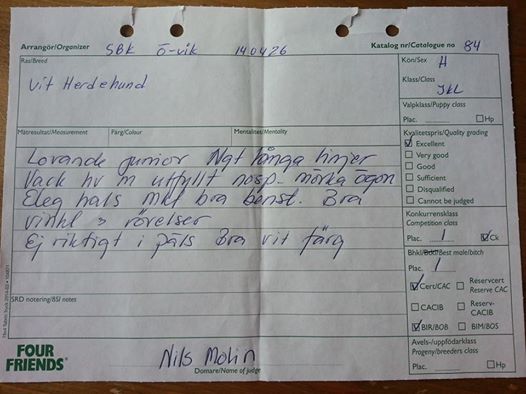 Arrangör/Organizer SBK Ö-vik 140426 Katalog nr/Catalogue no 84
Ras/Breed
Vit Herdehund
Kön/Sex H
Klass/Class
JKL
Valpklass/Puppy class
Plac. Hp
Mätresultat/Measurement Färg/Colour Mentalitet/Mentality
Kvalitetspris/Quality grading
Excellent
Very good
Good
Sufficient
Disqualified
Cannot be judged
Lovande junior Ngt långa linjer
Vack hv m utfyllt nosp- mörka ögon
Eleg hals mkt bra benst. Bra
vinkl o rörelser
Ej riktigt i päls Bra vit färg
Konkurrensklass
Competition class
Plac. 1 Ck
Bhkl/Bdkl/Best male/bitch
Plac. 1
Cert/CAC Reservcert
Reserve CAC
CACIB Reserv-
CACIB
BIR/BOB BIM/BOS
SRD notering/BSI notes
Avels-/uppfödarklass
Progeny/breeders class
Plac. Hp
FOUR
FRIENDS
Nils Molin
Domare/Name of judge